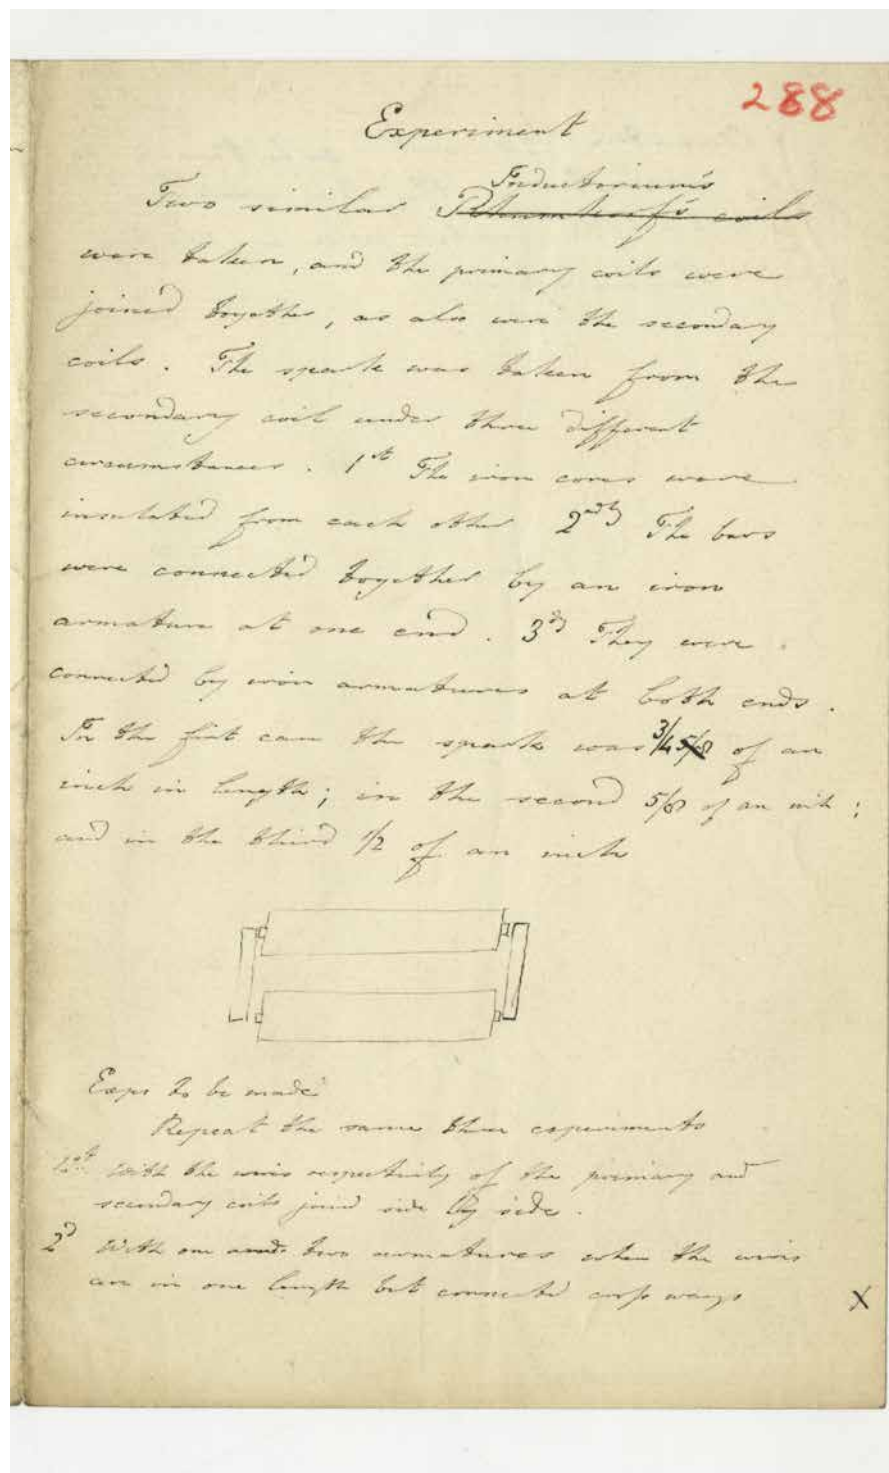 288
Experiment
Inductoriums
Two similar Rhumkorf's coils
were taken, and the primary coils were
joined together, as also were the secondary
coils. The spark was taken from the
secondary coil under three different
circumstances. 1st The iron cores were
insulated from each other 2ndly The bars
were connected together by an iron
armature at one end. 3d They were
connected by iron armatures at both ends.
In the first case the spark was 3/4 5/8 of an
inch in length; in the second 5/8 of an inch;
and in the third 1/2 of an inch
Exps to be made
Repeat the same three experiments
1st With the wires respectively of the primary and
secondary coils joined side by side.
2d With one and two armatures when the wires
are in one length but connected cross ways
X